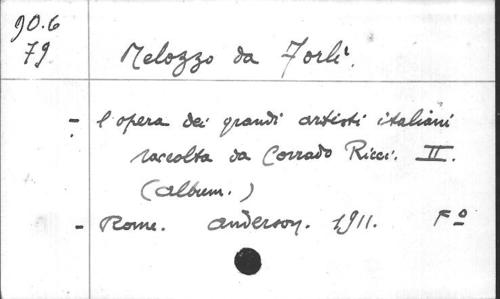 90.6
79
Melozzo da Forlì.
- L'opera dei grandi artisti italiani
raccolta da Corrado Ricci. II.
(album.)
- Rome. Anderson. 1911. Fº